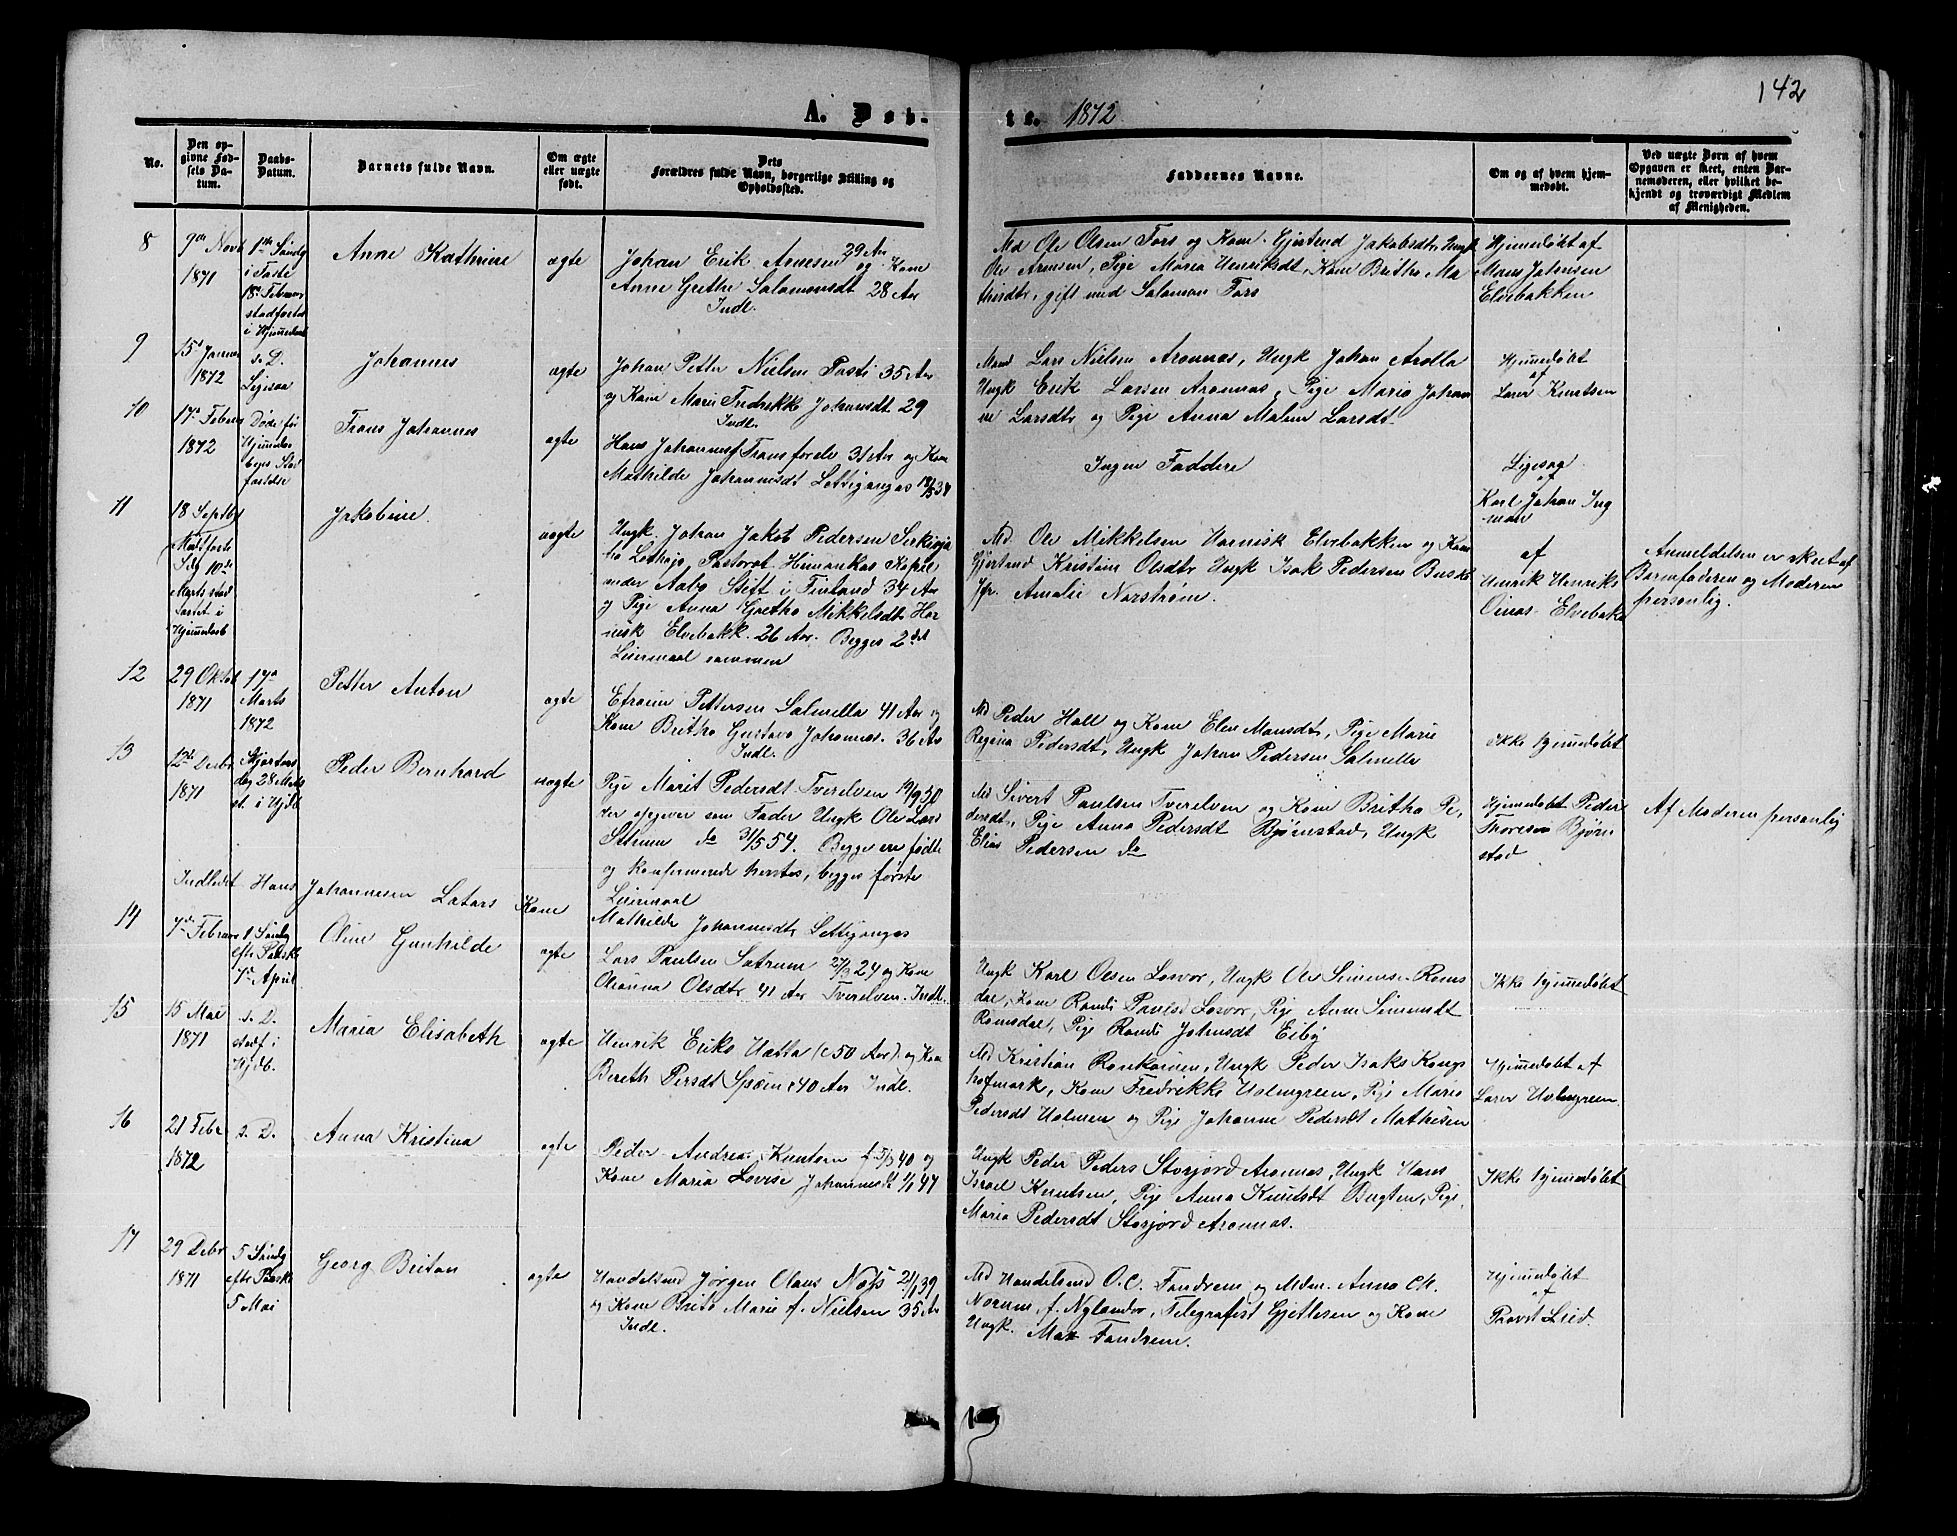 142
A. Døb-
te. 1872
No.
Den opgivne Fødsels Datum.
Daabs-Datum.
Barnets fulde Navn.
Om ægte eller uægte født.
Dets Forældres fulde Navn, borgerlige Stilling og Opholdssted.
Faddernes Navne.
Om og af hvem hjemmedøbt.
Ved uægte Børn af hvem Opgaven er skeet, enten Barnemoderen, eller hvilket bekjendt og troværdigt Medlem af Menigheden.
8
9de Novb
1871
1ste Søndg
i Faste
18de Februar
stadfæstet
i Hjemmedaab
Anne Kathrine
ægte
Johan Erik Arnesen 29 Aar og Kone
Anne Grethe Salamonsdt 28 Aar
Indl.
Md Ole Olsen Fors og Kone Gjertrud Jakobsdtr, Ungk
Ole Arnesen, Pige Maria Henriksdt, Kone Britha Ma
thisdtr, gift med Salamon Fors
Hjemmedøbt af
Mons Johnsen
Elvebakken
9
15de Januar
1872
s. D.
Ligesaa
Johannes
ægte
Johan Petter Nielsen Pasti 35 Aar
og Kone Marie Fredrikke Johansdt 29
Indl.
Mand Lars Nielsen Aronnæs, Ungk Johan Arolla
Ungk Erik Larsen Aronnæs, Pige Maria Johan
ne Larsdtr og Pige Anna Malene Larsdt.
Hjemmedøbt
af
Lærer Knutsen
10
17de Februar
1872
Døde før
Hjemmedaa
bens Stad
fæstelse
Frans Johannes
ægte
Hans Johannes
Mathilde Johannesdt Lettigangas
Ingen Faddere
Ligesaa
af
Karl Johan Ing
man
11
18 Septbr
Jakobine.
uægte
Ungk. Johan Jakob Pedersen
Pastorat Himankas Kapel
under Aabo Stift i Finland 34 Aar
og Pige Anna Gretha Mikkelsdtr Har
nisk Elvebakk. 26 Aar. Begges 2det
Leiermaal sammen
Md. Ole Mikkelsen Harnisk Elvebakken og Kone
Gjertrud Kristine Olsdtr Ungk Isak Pedersen Busk
Jfr. Amalie Norstrøm.
af
Henrik Henriks
Oinas Elvebakk
Anmeldelsen er skeet af
Barnefaderen og Moderen
personlig.
12
29 Oktob
1871
17de
Marts
1872
Petter Anton
ægte
Efraim Pettersen Salmella 41 Aar og
Kone Britha Gustava Johannes. 36 Aar
Indl.
Md Peder Hall og Kone Elen Monsdt, Pige Marie
Regina Pedersdt, Ungk Johan Pedersen Salmella
Ikke hjemmedøbt
13
12te Decbr
1871
Skjærtors
dag 28 Marts
st. i Hjdb
Peder Bernhard
uægte
Pige Marit Pedersdt Tverelven 19/9 30
der opgiver som Fader Ungk Ole Lars
Sætrum do 31/5 54. Begge ere fødte
og konfirmerede herstes, begges første
Leiermaal
Md Sivert Paulsen Tverelven og Kone Britha Pe,
dersdt, Pige Anna Pedersdt Bjørnstad, Ungk
Elias Pedersen do
Hjemmedøbt Peder
Thoresen Bjørn
stad
Af Moderen personlig
Indledet Hans Johannesen Latars Kone
Mathilde Johannesdtr Lettigangas
14
7de Februar
1 Søndg
efter Paaske
7de April
Oline Gunhilde
ægte
Lars Paulsen Sætrum 27/3 24 og Kone
Olianna Olsdtr 41 Aar Tverelven. Indl.
Ungk Karl Olsen Losvor, Ungk Ole Simonsen Roms
dal, Kone Randi Paulsd Losvor, Pige Anne Simonsdt
Romsdal, Pige Randi Johnsdt Eiby
Ikke hjemmedøbt
15
15 Mai
1871
s. D.
stadf i
Hjdb.
Maria Elisabeth
ægte
Henrik Eriks Hætta (c 50 Aar) og Kone
Bereth Persdt Spein c 40 Aar Indl.
Md Kristian Ronkainen, Ungk Peder Isaks Kongs
hofmark, Kone Fredrikke Holmgreen, Pige Maria
Pedersdt Holmen og Pige Johanne Pedersdt Mathisen
Hjemmedøbt af
Lærer Holmgreen
16
21 Febr
1872
s. D.
Anna Kristina
ægte
Peder Andreas Knutsen f. 5/3 40 og
Kone Maria Lovise Johannesdt 1/1 47
Ungk Peder Peders Storjord Aronnæs, Ungk Hans
Israel Knutsen, Pige Anna Knutsdt Bugten, Pige
Maria Pedersdt Storjord Aronnæs.
Ikke hjemmedøbt
17
29 Decbr
1871
5 Søndg
efter Paaske
5 Mai
Georg Britan
ægte
Handelsmd Jørgen Olaus Næss 21/1 39
og Kone Brita Marie f. Nielsen 35 Aar
Indl.
Md Handelsmd O. C. Fandrem og Mdm. Anna Ch.
Norum, f. Nylander, Telegrafist Gjetlesen og Kone
Ungk. Max Fandrem.
Hjemmedøbt
af
Provst Lied.